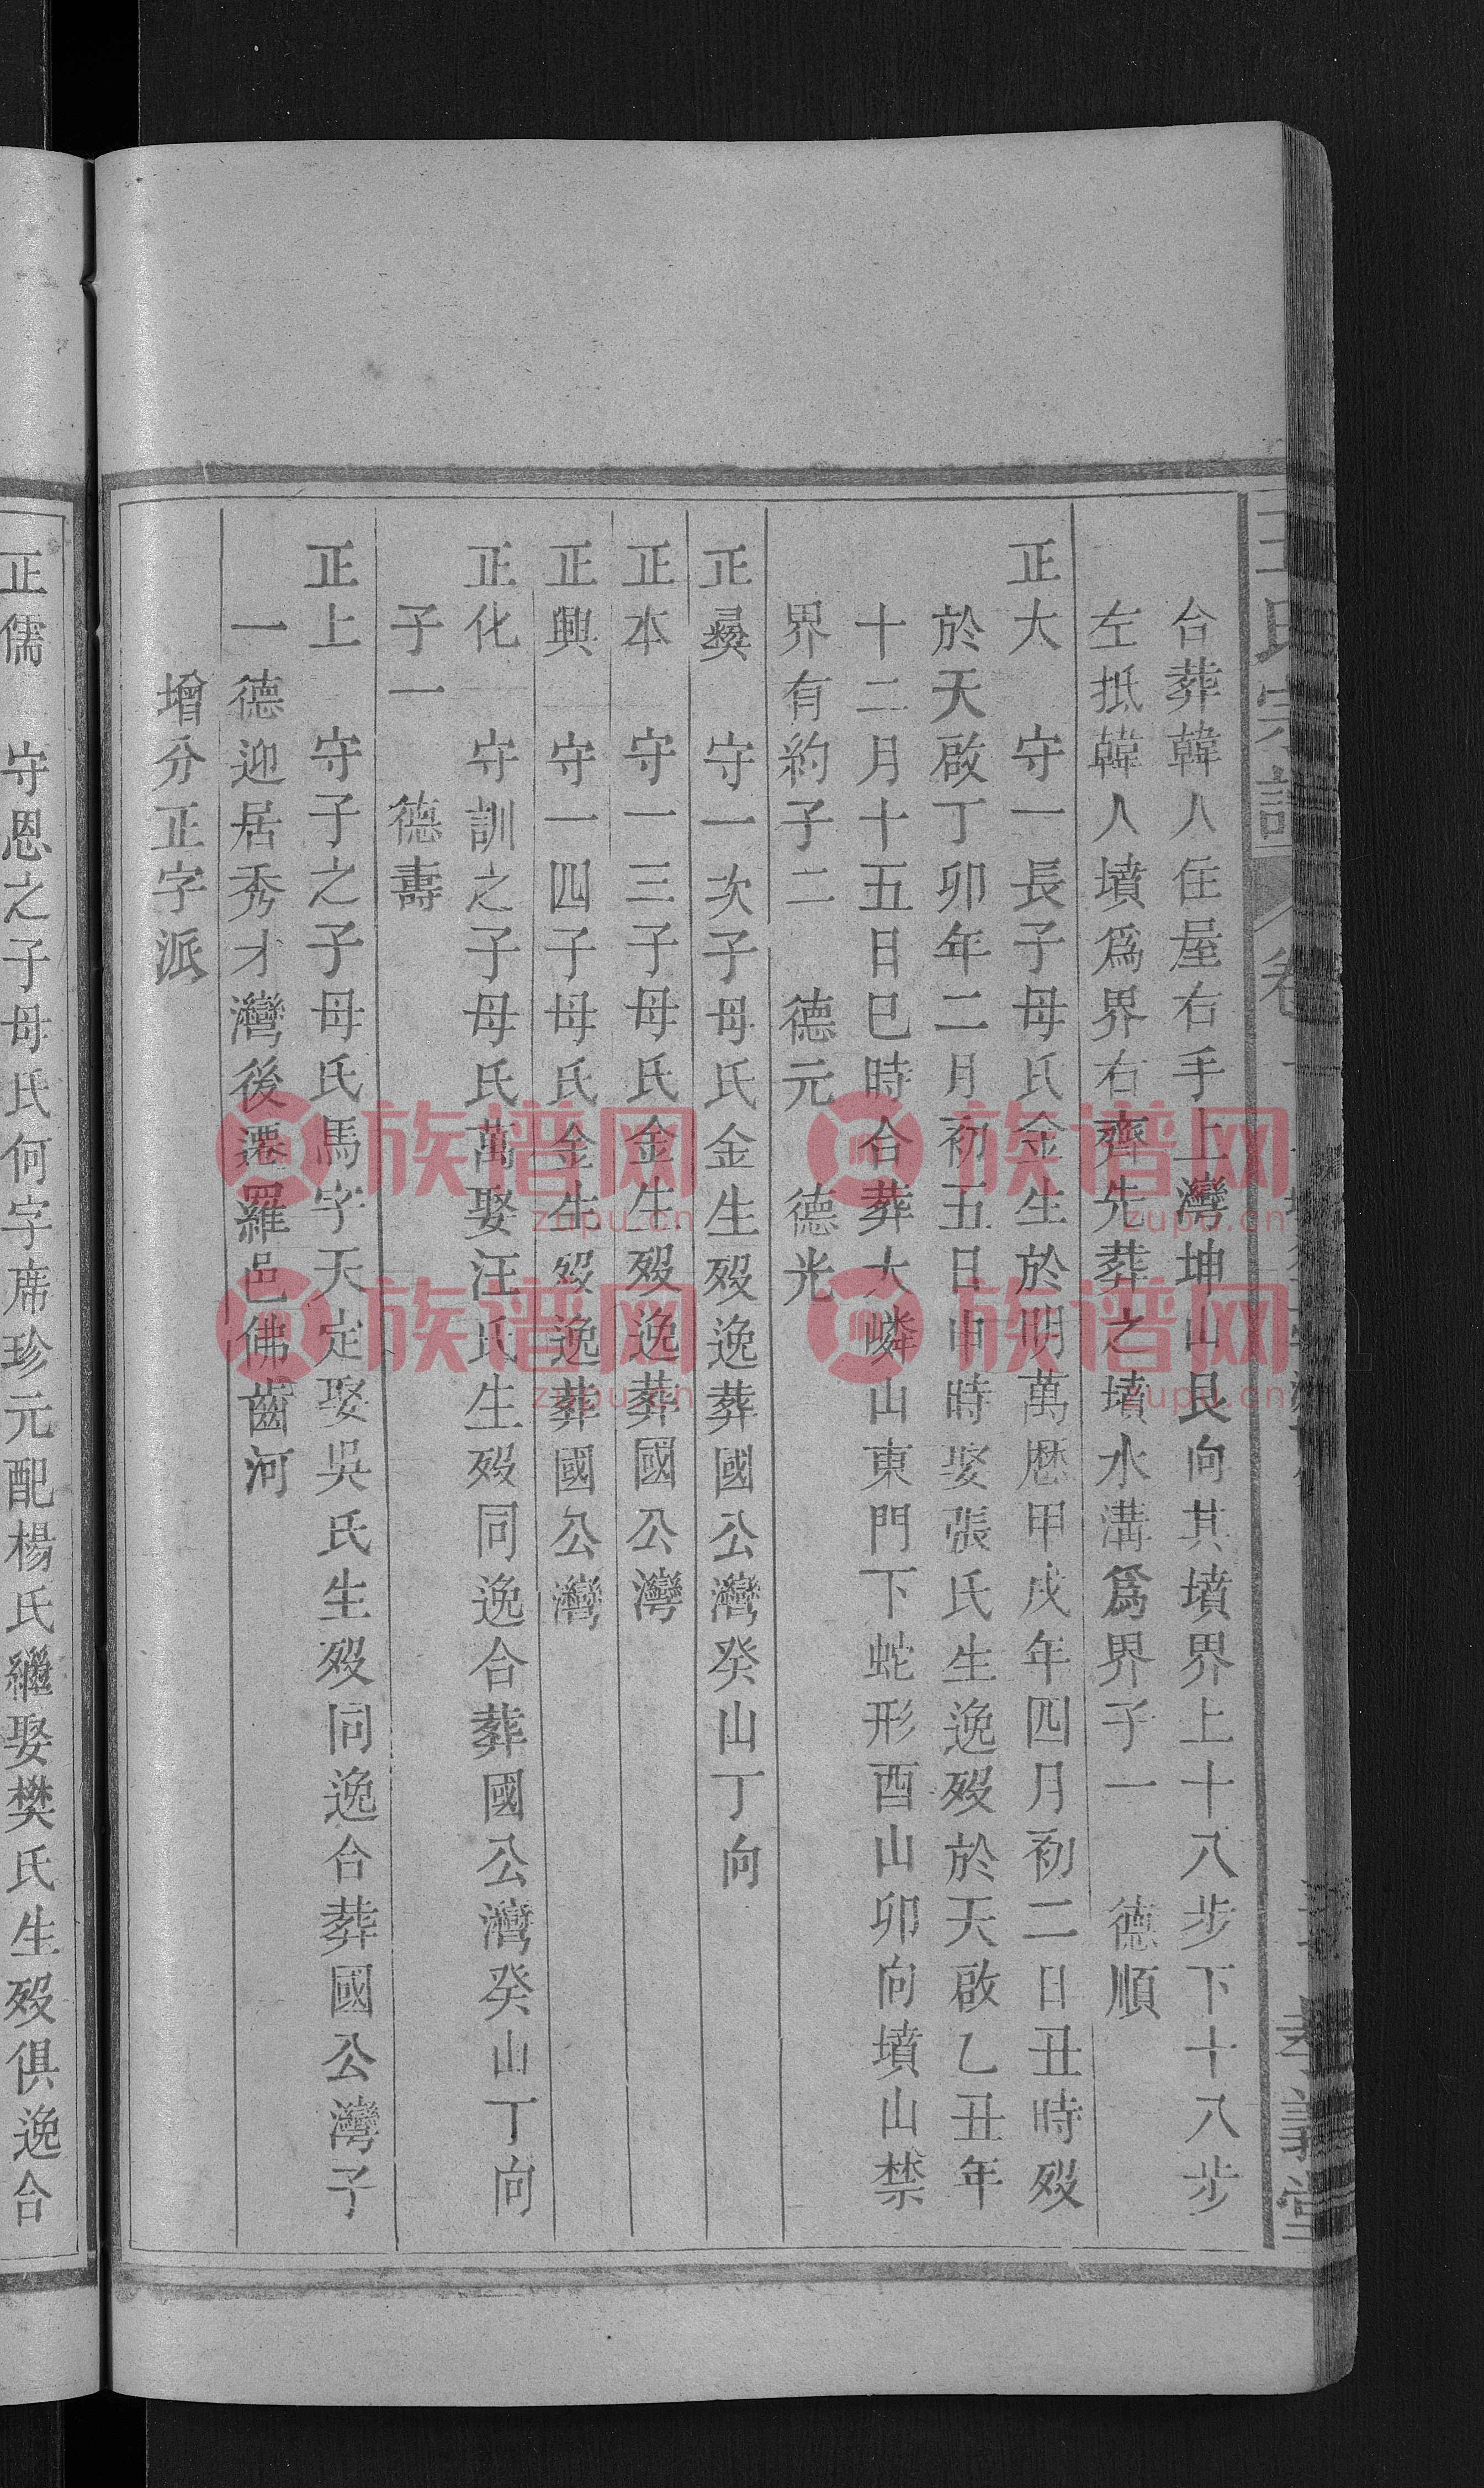 王氏宗譜
卷
孝義堂
合葬韓人住屋右手上灣坤山艮向其墳界上十八步下十八步
左抵韓人墳爲界右齊先葬之墳水溝爲界子一 德順
正大 守一長子母氏金生於明萬厯甲戌年四月初二日丑時殁
於天啟丁卯年二月初五日申時娶張氏生逸殁於天啟乙丑年
十二月十五日巳時合葬大嶙山東門下蛇形酉山卯向墳山禁
界有約子二 德元 德光
正彝 守一次子母氏金生殁逸葬國公灣癸山丁向
正本 守一三子母氏金生殁逸葬國公灣
正興 守一四子母氏金生殁逸葬國公灣
正化 守訓之子母氏萬娶汪氏生殁同逸合葬國公灣癸山丁向
子一 德壽
正上 守子之子母氏馬字天定娶吳氏生殁同逸合葬國公灣子
一 德迎居秀才灣後遷羅邑佛齒河
增分正字派
正儒 守恩之子母氏何字席珍元配楊氏繼娶樊氏生殁俱逸合
族谱网
zupu.cn
族谱网
zupu.cn
族谱网
zupu.cn
族谱网
zupu.cn